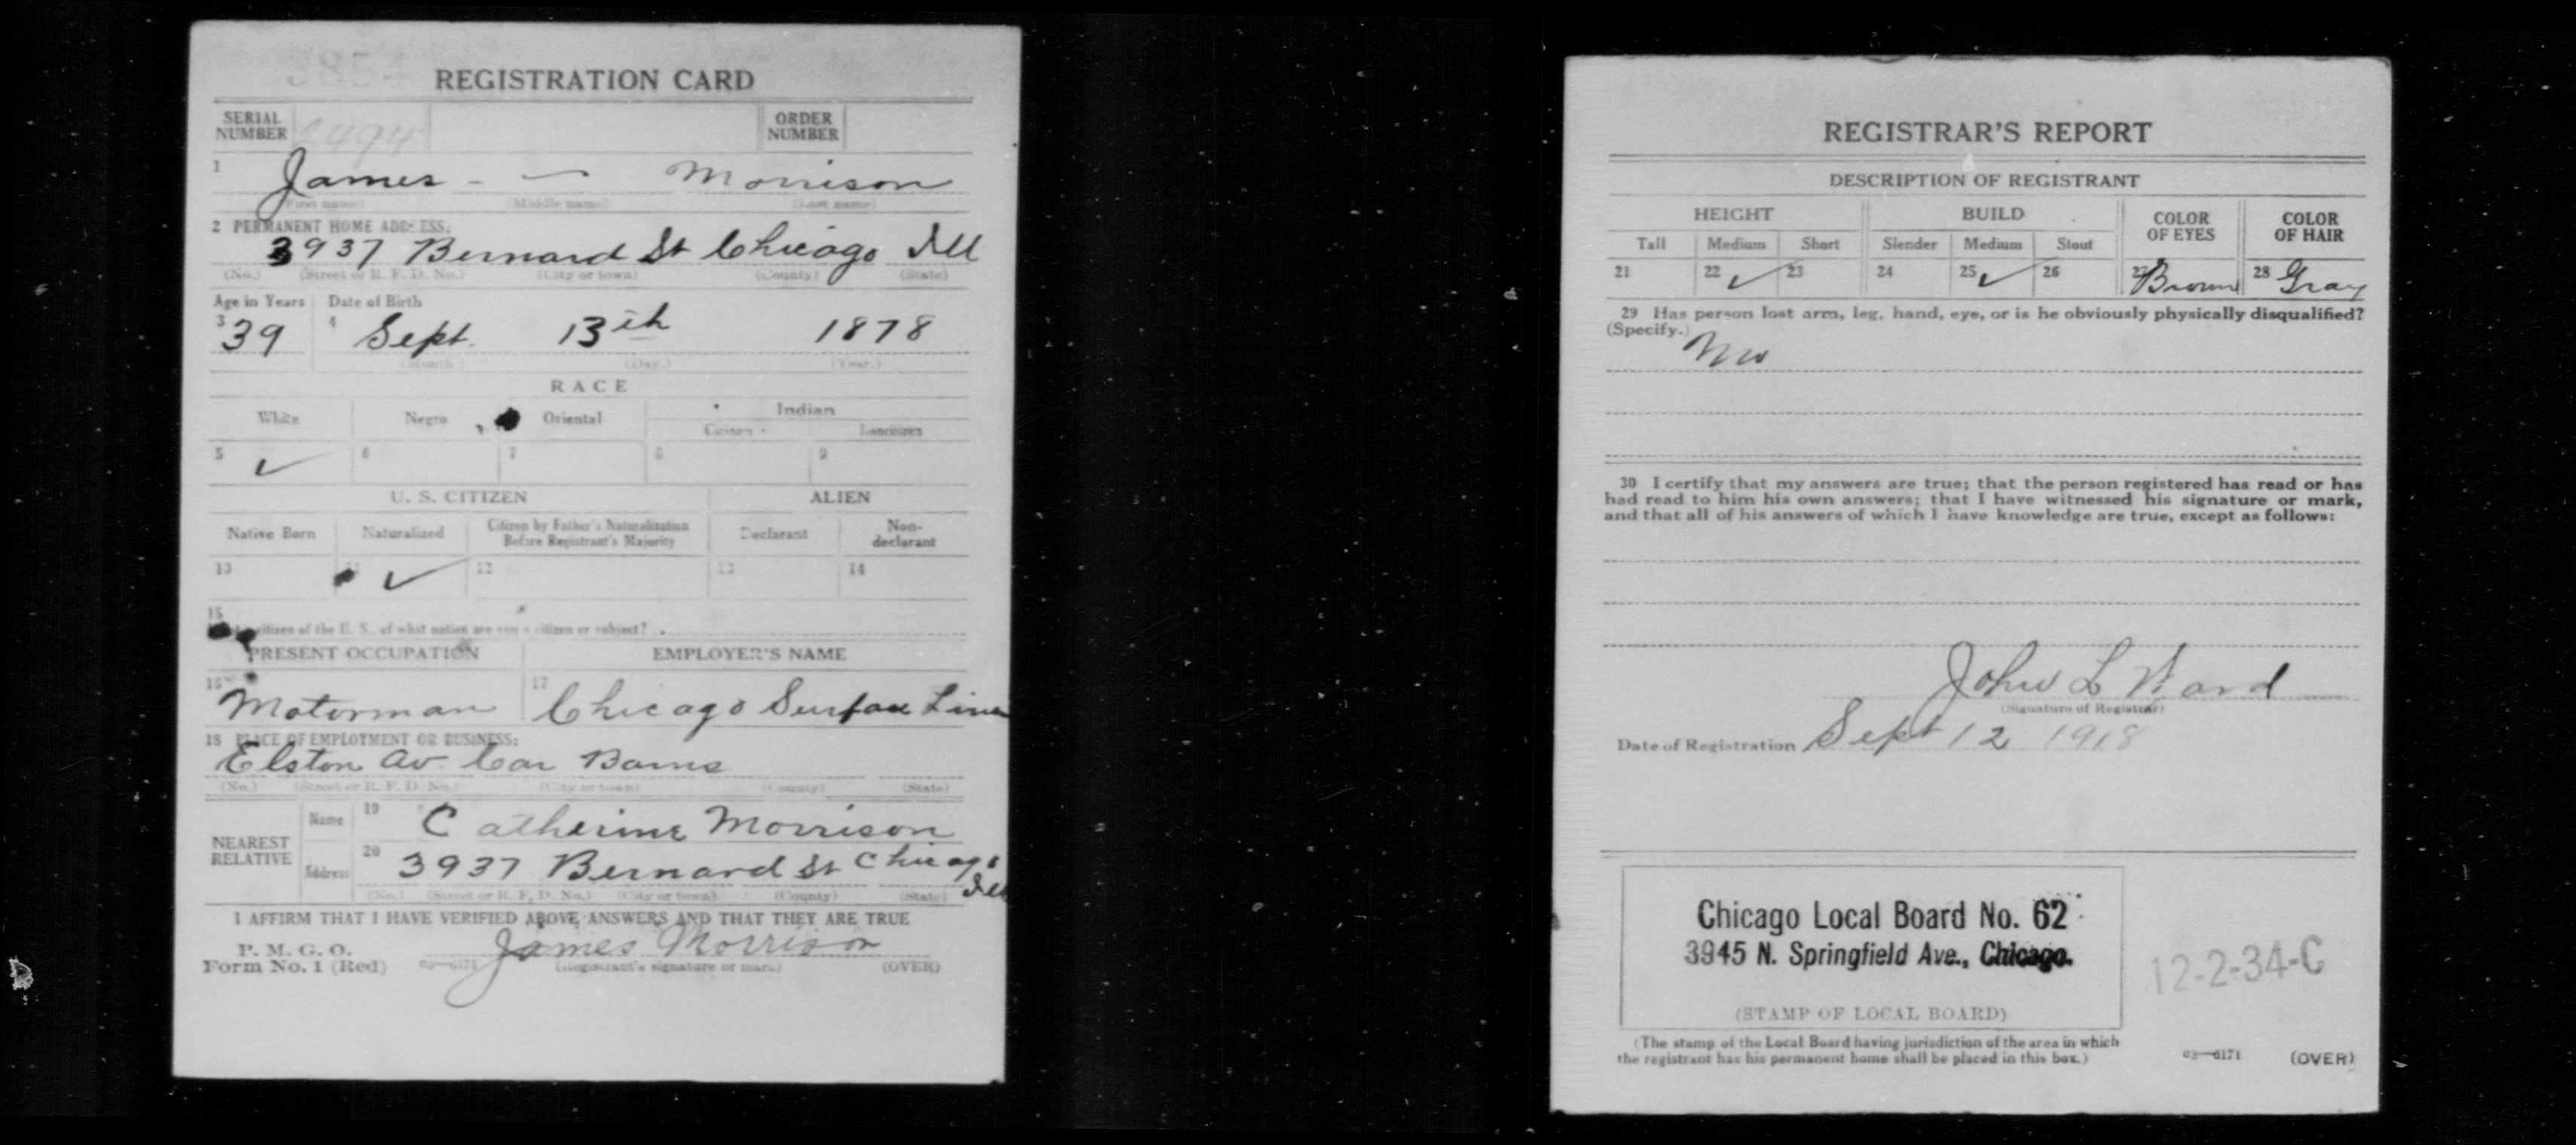 3854
REGISTRATION CARD
SERIAL NUMBER 494 ORDER NUMBER
1 James - — Morrison
(First name) (Middle name) (Last name)
2 PERMANENT HOME ADDRESS:
3937 Bernard St Chicago Ill
(No.) (Street or R. F. D. No.) (City or town) (County) (State)
Age in Years Date of Birth
3 39 4 Sept. 13th 1878
(Month.) (Day.) (Year.)
RACE
White Negro Oriental Indian
Citizen Noncitizen
5 ✓ 6 7 8 9
U. S. CITIZEN ALIEN
Native Born Naturalized Citizen by Father's Naturalization Before Registrant's Majority Declarant Non-declarant
10 11 ✓ 12 13 14
15
citizen of the U. S., of what nation are you a citizen or subject?
PRESENT OCCUPATION EMPLOYER'S NAME
16 Motorman 17 Chicago Surface Lines
18 PLACE OF EMPLOYMENT OR BUSINESS:
Elston Av. Car Barns
(No.) (Street or R. F. D. No.) (City or town) (County) (State)
NEAREST RELATIVE
Name 19 Catherine Morrison
Address 20 3937 Bernard St Chicago Ill
(No.) (Street or R. F. D. No.) (City or town) (County) (State)
I AFFIRM THAT I HAVE VERIFIED ABOVE ANSWERS AND THAT THEY ARE TRUE
P. M. G. O.
Form No. 1 (Red) 03—6171 James Morrison
(Registrant's signature or mark) (OVER)
REGISTRAR'S REPORT
DESCRIPTION OF REGISTRANT
HEIGHT BUILD COLOR OF EYES COLOR OF HAIR
Tall Medium Short Slender Medium Stout
21 22 ✓ 23 24 25 ✓ 26 27 Brown 28 Gray
29 Has person lost arm, leg, hand, eye, or is he obviously physically disqualified?
(Specify.) No
30 I certify that my answers are true; that the person registered has read or has
had read to him his own answers; that I have witnessed his signature or mark,
and that all of his answers of which I have knowledge are true, except as follows:
John L Ward
(Signature of Registrar)
Date of Registration Sept 12 1918
Chicago Local Board No. 62
3945 N. Springfield Ave., Chicago.
12-2-34-C
(STAMP OF LOCAL BOARD)
(The stamp of the Local Board having jurisdiction of the area in which
the registrant has his permanent home shall be placed in this box.)
03—6171 (OVER)